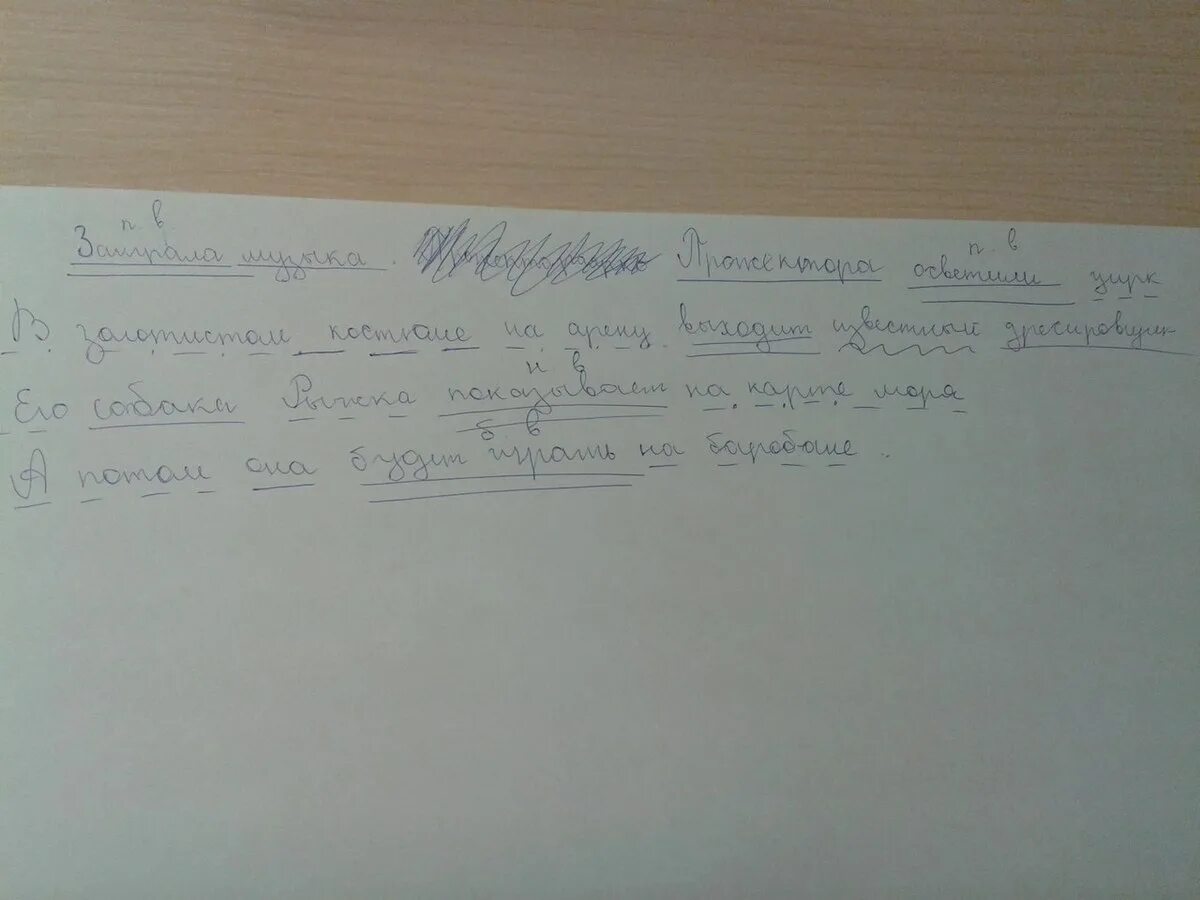 п. в
Заиграла музыка. Прожектора осветили цирк
п. в
В золотистом костюме на арену выходит известный дресировщик
н. в
Его собака Рыжка показывает на карте моря
б. в
А потом она будит играть на барабане.